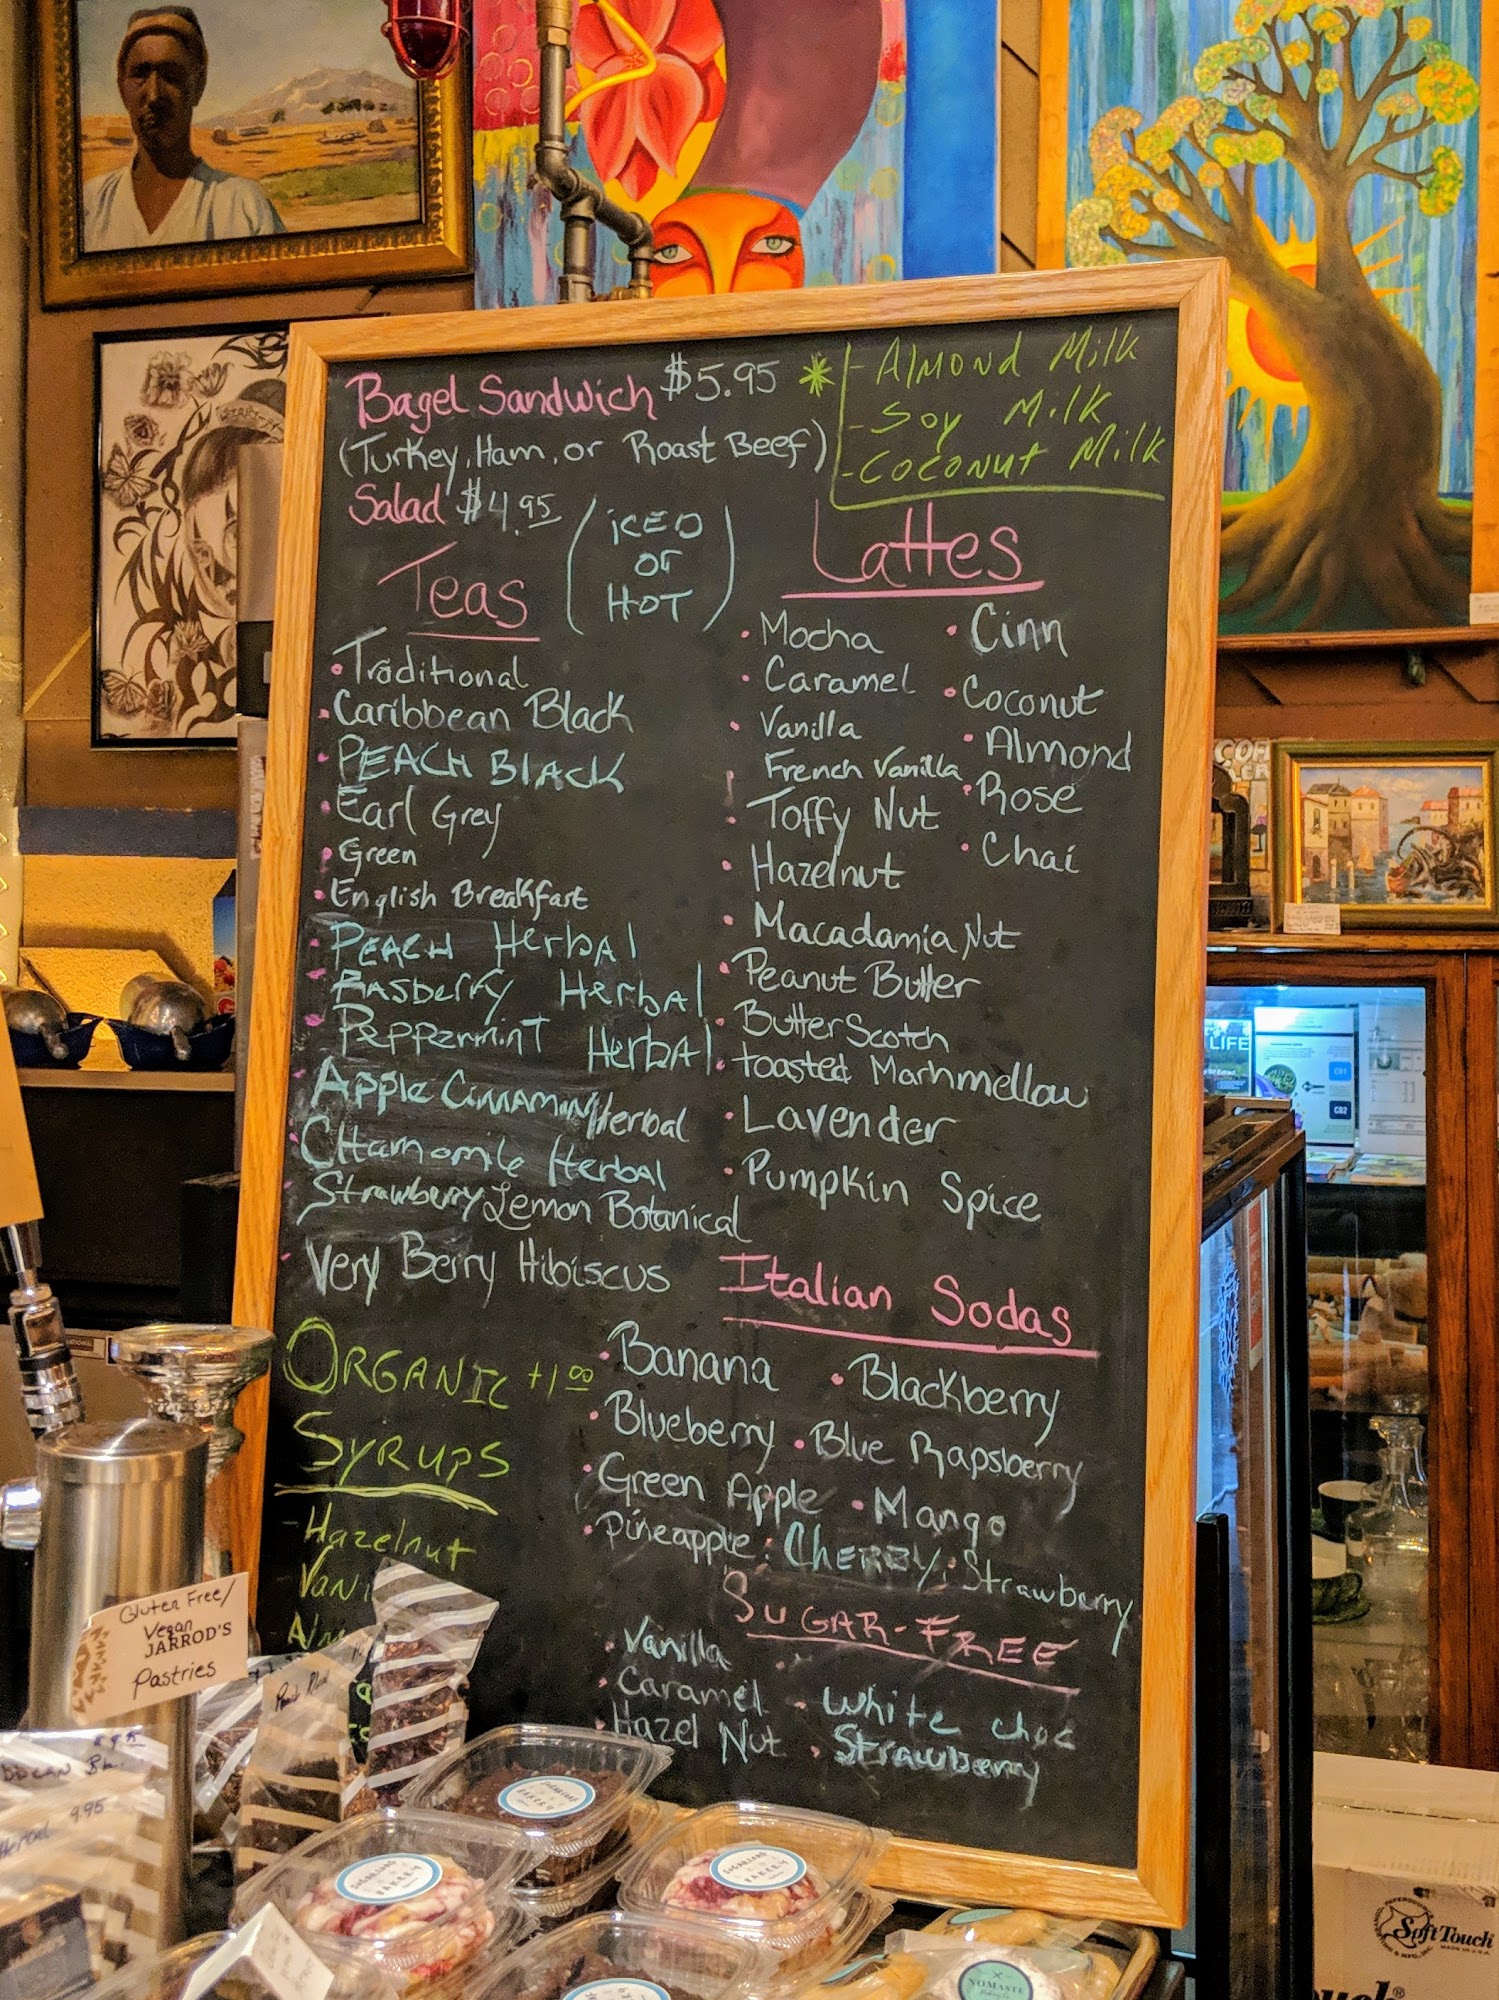 Bagel Sandwich $5.95
(Turkey, Ham, or Roast Beef)
Salad $4.95
* - Almond Milk
- Soy Milk
- Coconut Milk
Teas
(iCED
or
HOT)
• Traditional
• Caribbean Black
• PEACH BLACK
• Earl Grey
• Green
• English Breakfast
• PEACH HerbAl
• Rasberry HerbAl
• Peppermint HerbAl
• Apple Cinnamon Herbal
• Chamomile Herbal
• Strawberry Lemon Botanical
• Very Berry Hibiscus
Lattes
• Mocha
• Caramel
• Vanilla
French Vanilla
• Toffy Nut
• Hazelnut
• Macadamia Nut
• Peanut Butter
• Butter Scotch
• toasted Marhmellow
• Lavender
• Pumpkin Spice
• Cinn
• Coconut
• Almond
• Rose
• Chai
Italian Sodas
• Banana • Blackberry
• Blueberry • Blue Rapsberry
• Green Apple • Mango
• pineapple • Cherry • Strawberry
SUGAR-FREE
• Vanilla
• Caramel • White choc
• Hazel Nut • Strawberry
ORGANIC +1.00
SYRUPS
- Hazelnut
Gluten Free/
Vegan
JARROD'S
Pastries
9.95
BAKERY
BAKERY
NOMASTE
LIFE
CB1
CB2
Soft Touch
MADE IN U.S.A.